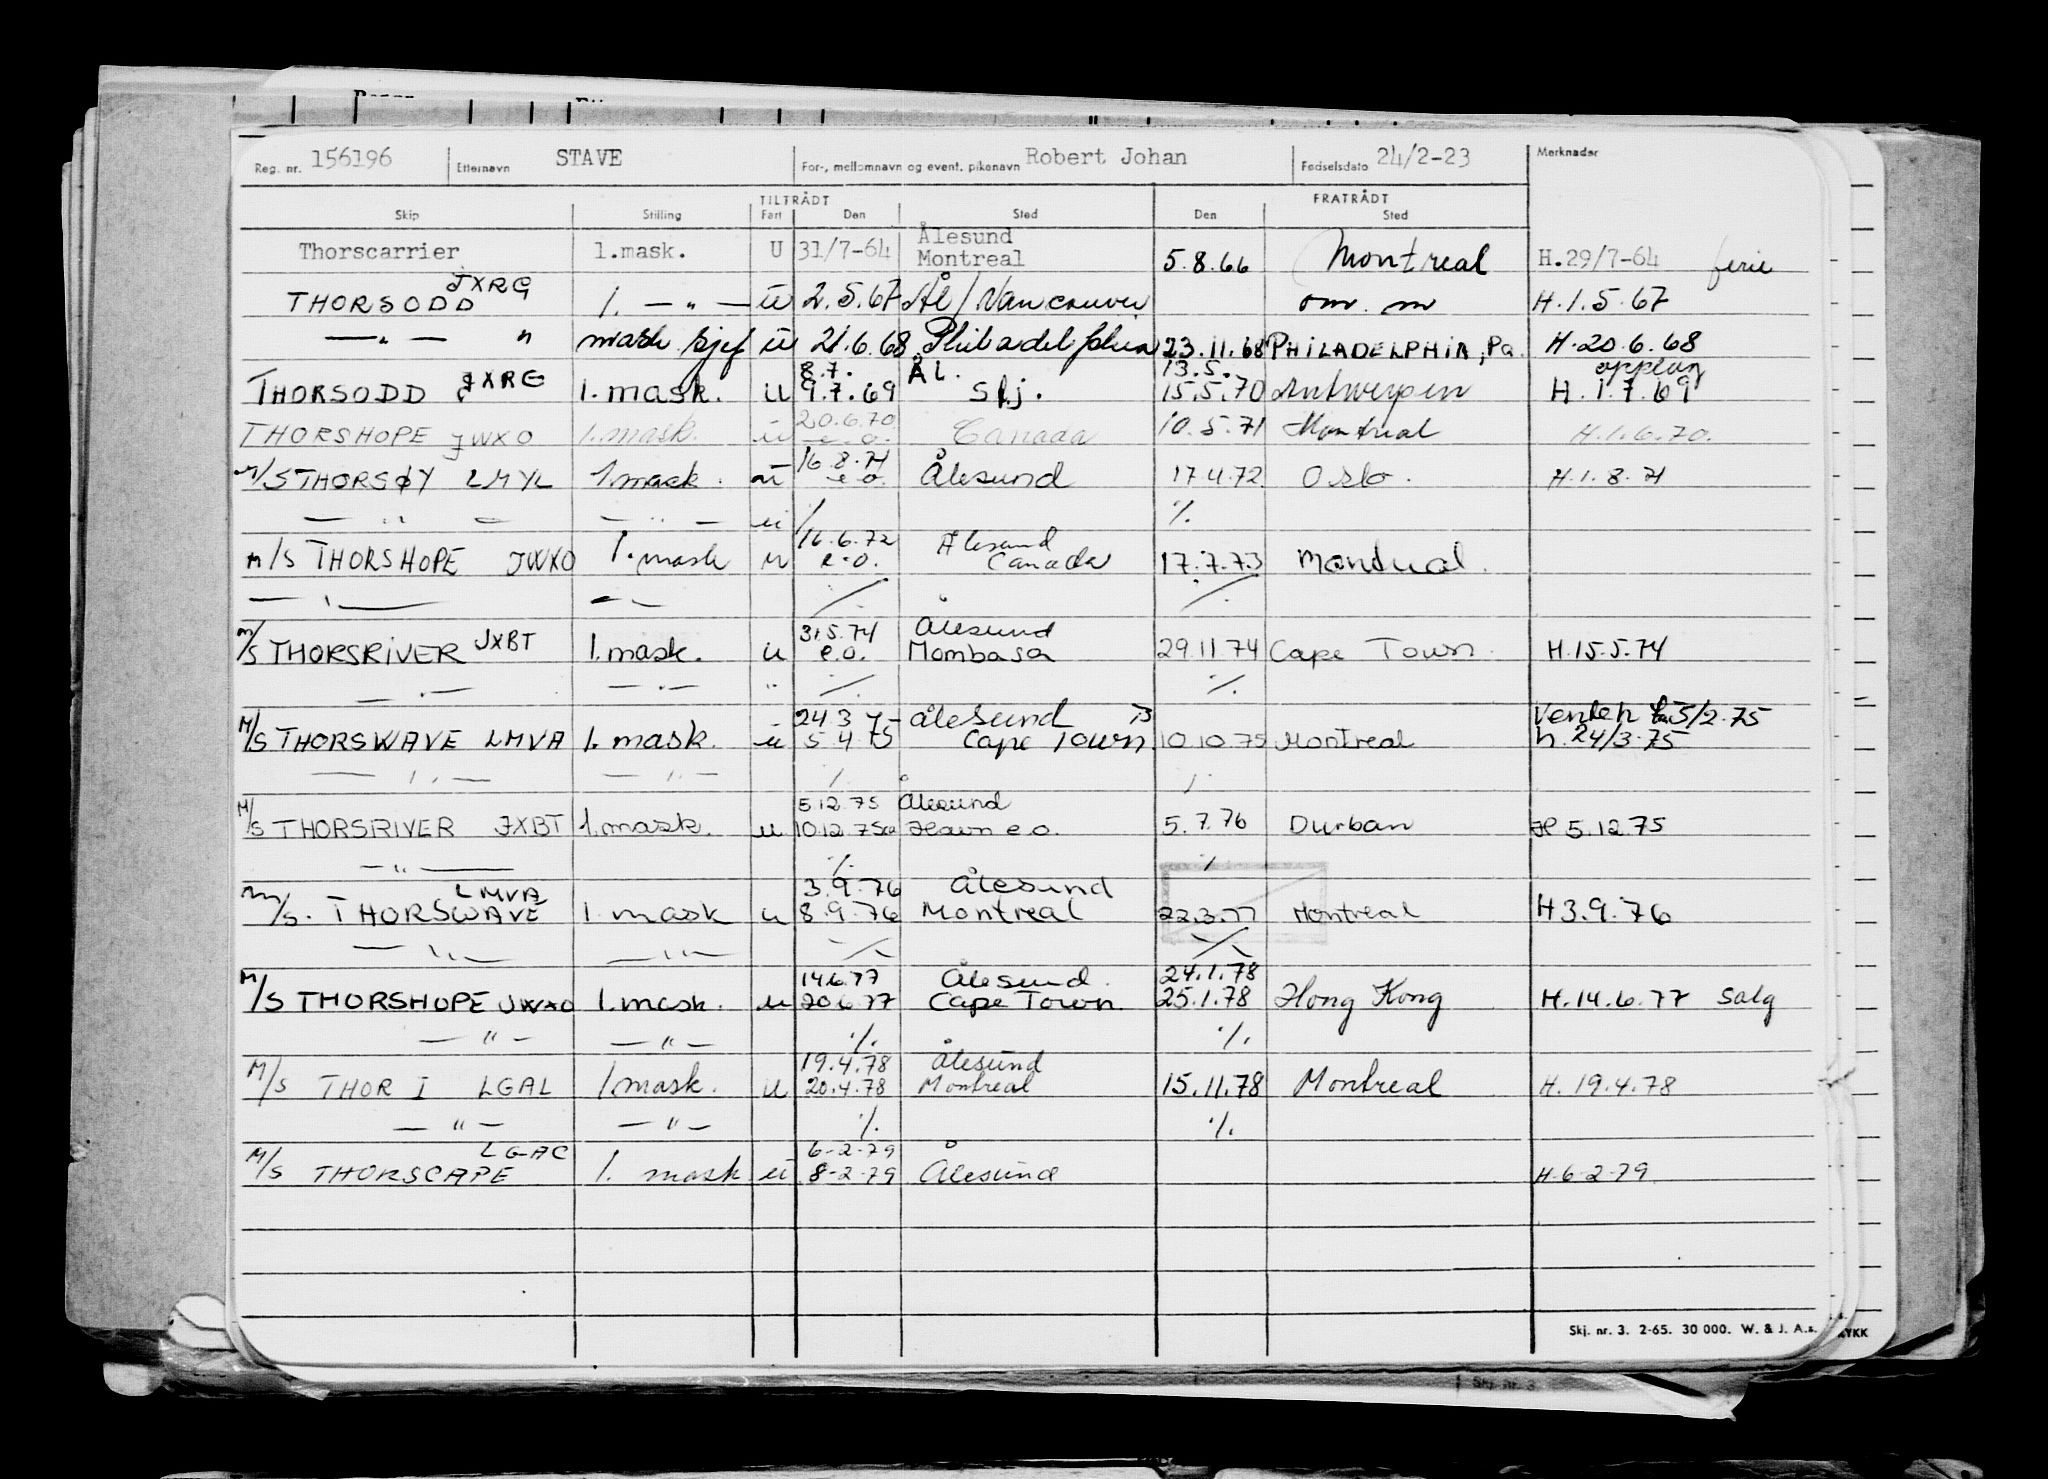 Reg. nr. 156196 Etternavn STAVE For-, mellomnavn og event. pikenavn Robert Johan Fødselsdato 24/2-23 Merknader
TILTRÅDT FRATRÅDT
Skip Stilling Fart Den Sted Den Sted
Ålesund
Thorscarrier 1.mask. U 31/7-64 Montreal 5.8.66 Montreal H.29/7-64 ferie
JXRG
THORSODD 1. — " — u 2.5.67 Ål / Vancouver om. m H.1.5.67
— " — " mask. sjef u 21.6.68 Philadelphia 23.11.68 PHILADELPHIA, Pa. H.20.6.68
8.7. ÅL. 13.5.
THORSODD JXRG 1. mask. u 9.7.69 skj. 15.5.70 Antwerpen H.1.7.69
20.6.70
THORSHOPE JWXO 1. mask. u e.o. Canada 10.5.71 Montreal H.1.6.70.
16.8.71
M/S THORSØY LMYL 1. mask. u e.o. Ålesund 17.4.72 Oslo. H.1.8.71
— " — — " — u ./. ./.
16.6.72 Ålesund
M/S THORSHOPE JWXO 1. mask u e.o. Canada 17.7.73 Montreal.
— " — — — ./. ./.
31.5.74 Ålesund
M/S THORSRIVER JXBT 1. mask. u e.o. Mombasa 29.11.74 Cape Town. H.15.5.74
— " — — " — " ./. ./.
24.3.75 Ålesund Venteh 5/2.75
M/S THORSWAVE LMVA 1. mask. u 5.4.75 Cape Town 10.10.75 Montreal h. 24/3.75
— " — — " — ./. ./.
5.12.75 Ålesund
M/S THORSRIVER JXBT 1. mask. u 10.12.75 ca Havn e.o. 5.7.76 Durban H 5.12.75
— " — ./. ./.
LMVA 3.9.76 Ålesund
M/S. THORSWAVE 1. mask u 8.9.76 Montreal 22.3.77 Montreal H 3.9.76
— " — — " — ./. ./.
14.6.77 Ålesund. 24.1.78
M/S THORSHOPE JWXO 1. mask. u 20.6.77 Cape Town 25.1.78 Hong Kong H.14.6.77 Salg
— " — — " — ./. ./.
19.4.78 Ålesund
M/S THOR I LGAL 1. mask. u 20.4.78 Montreal 15.11.78 Montreal H. 19.4.78
— " — — " — ./. ./.
LGAC 6-2-79
M/S THORSCAPE 1. mask u 8-2-79 Ålesund H.6-2-79.
Skj. nr. 3. 2-65. 30 000. W. & J. A.s.